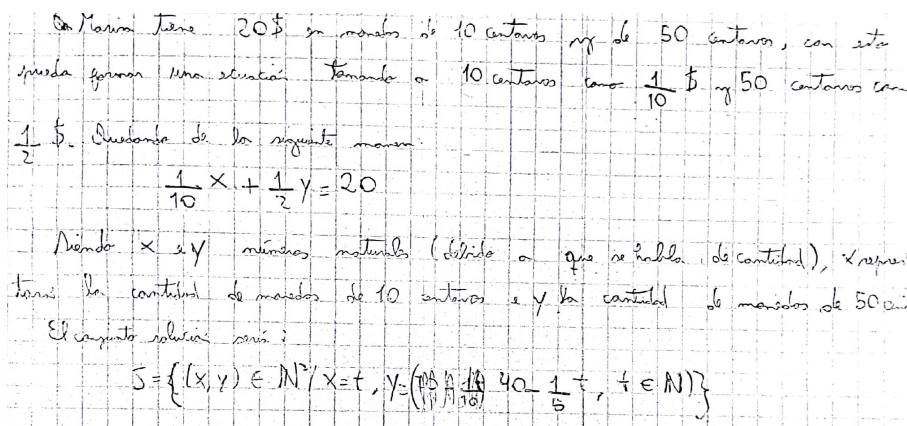 Marina tiene 20$ en monedas de 10 centavos y de 50 centavos, con esto
pueda formar una ecuación tomando a 10 centavos como 1/10 $ y 50 centavos com
1/2 $. Quedando de la siguiente manera:
1/10 x + 1/2 y = 20
Siendo x e y números naturales (debido a que se habla de cantidad), x represen
tará la cantidad de monedas de 10 centavos e y la cantidad de monedas de 50 cen
El conjunto solución será:
S = {(x,y) ∈ ℕ² / x = t, y = ( 40 - 1/5 t, t ∈ ℕ)}